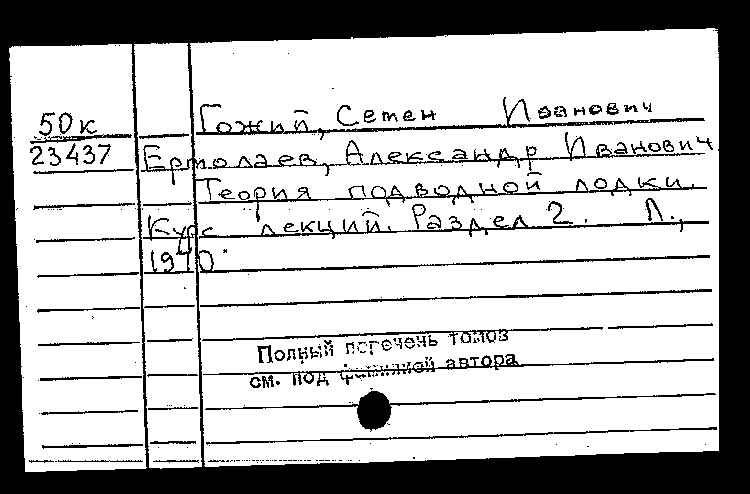 50к Гожий, Семен Иванович
23437 Ермолаев, Александр Иванович
Теория подводной лодки.
Курс лекций. Раздел 2. Л.,
1940
Полный перечень томов
см. под фамилией автора